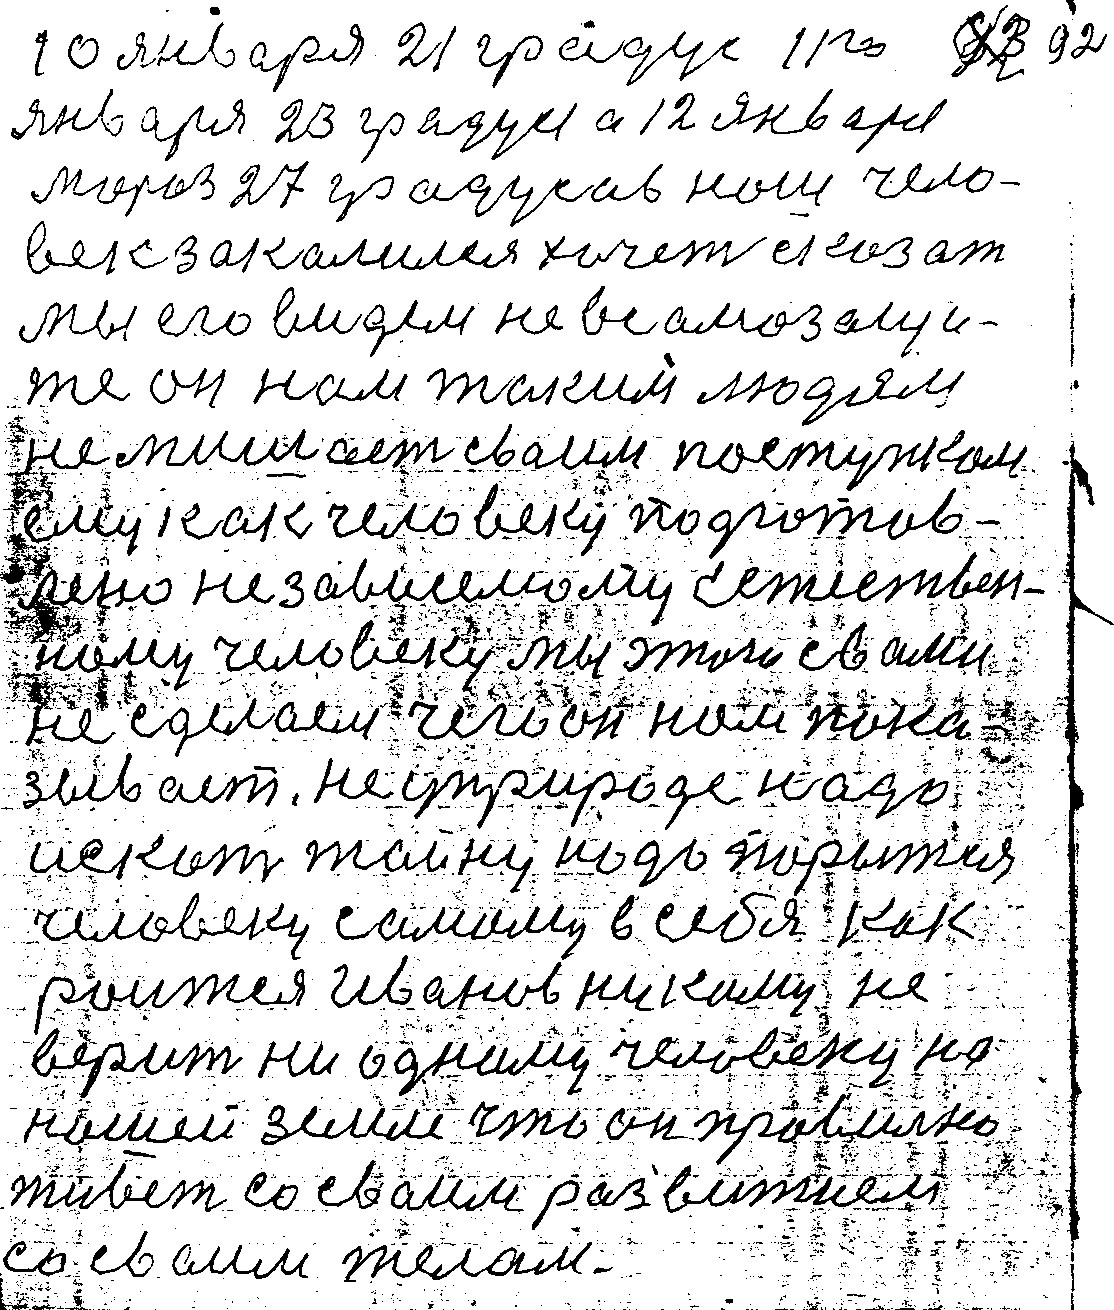 10 января 21 градус 11го 92
января 23 градуи а 12 января
мороз 27 градусав наш чело-
век закалился хочет сказат
мы его видем не всамозащи-
те он нам таким людям
не мишает сваим поступкам
ему как человеку подготов-
лено независемому Естествен-
ному человеку мы этого свами
не сделаем чего он нам пока-
зывает. Не уприроде надо
искат тайну надо порытся
человеку самому в себя как
роится Иванов никому не
верит ни одному человеку на
нашей земли что он правилно
живет со сваим развитием
со сваим телам.